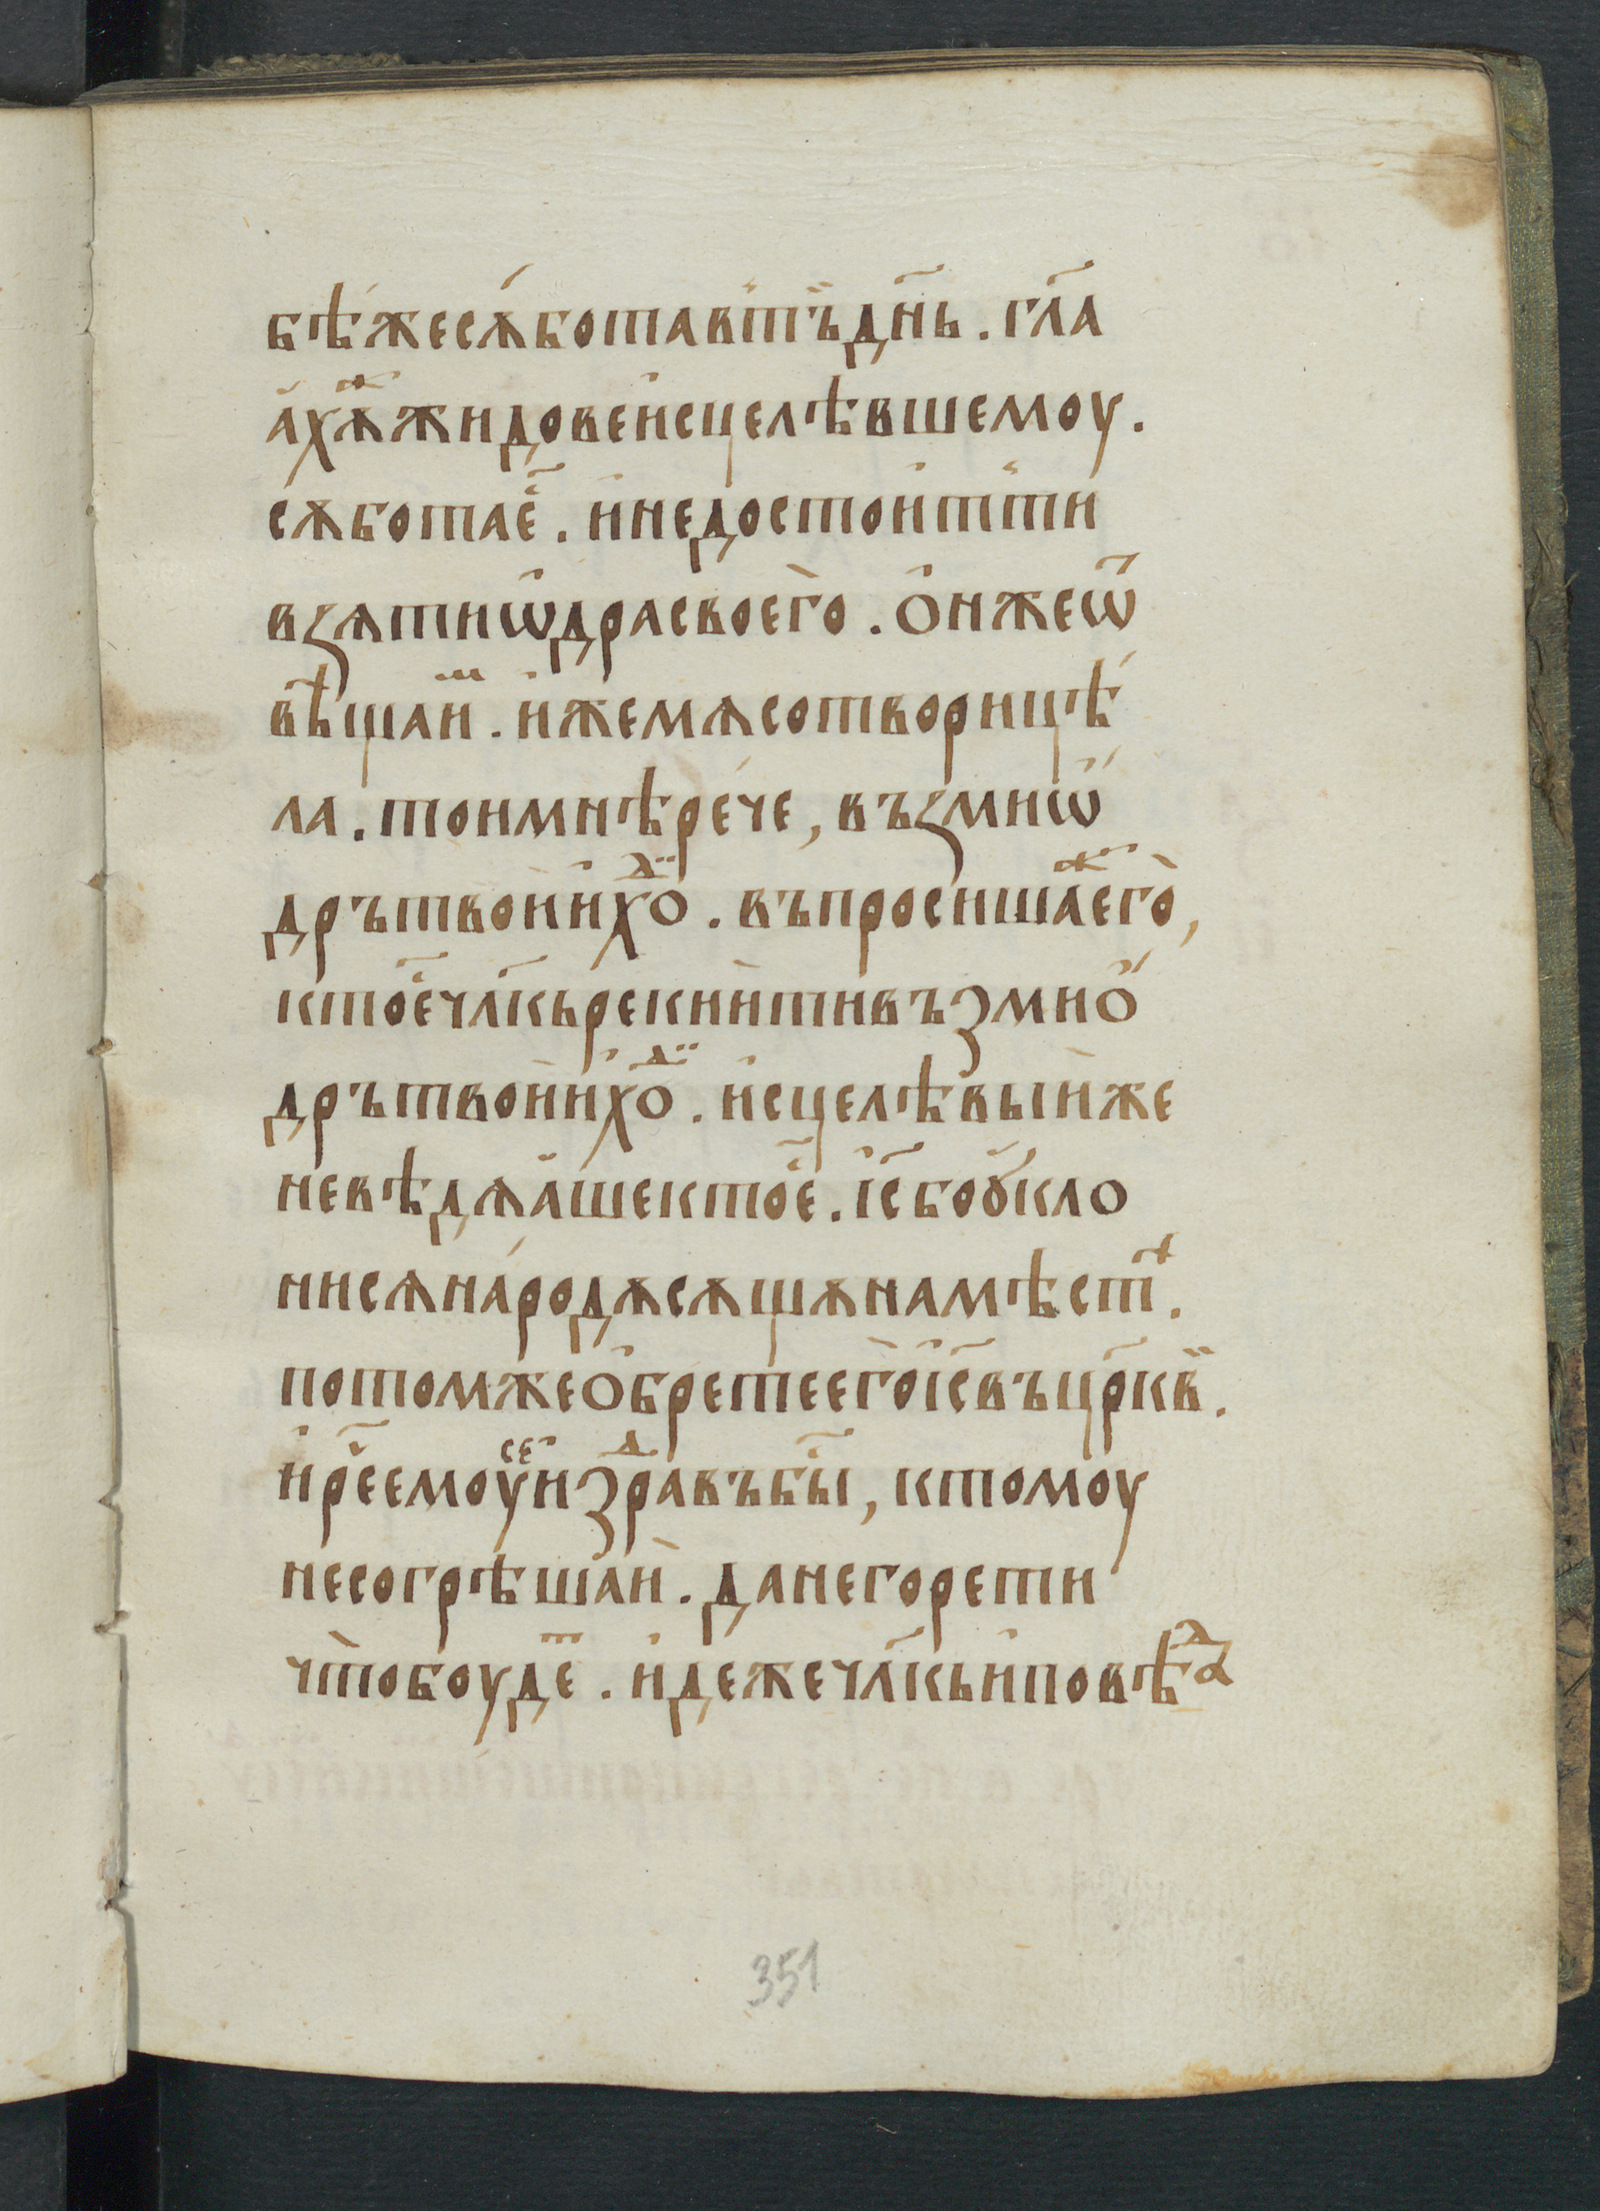 бѣ́жесѧ́ботавⸯтъ̏дн҃ь . гл҃а
а҆хѫⷤжидовеи҆сцелѣвшемоу .
сѫботае҆҃ . и҆недостои҆тⸯти
вꙁѧтиѡ҆драсвоего̀ . О҆нжеѿ
вѣ҆щаⷲи . и҆жемѧсотворицѣ́
ла . тоимнѣре́че , въꙁмиѿ
дрътвои̏и҆хоⷣ . въпросишаⷤего̀,
ктое҆҃чл҃кьрекии҆тивъзмио҆
дрътвои̏и҆хоⷣ . и҆сцелѣвыи̏же
невѣдѧа҆шектое҆҃ . і҆с҃боу҆кло
нисѧна́родѫсѫщѫнамѣстⷯ .
потомжео҆бретеего̀і҆с҃въцр҃кви̏ .
и҆ре҃емоу̏сеⷭ҇издⷣравъбы҃ , ктомоу
несогрѣшаи̏ . данегорети
что̀боудеⷮ . и҆дежечл҃кьи҆повѣⷣа
351